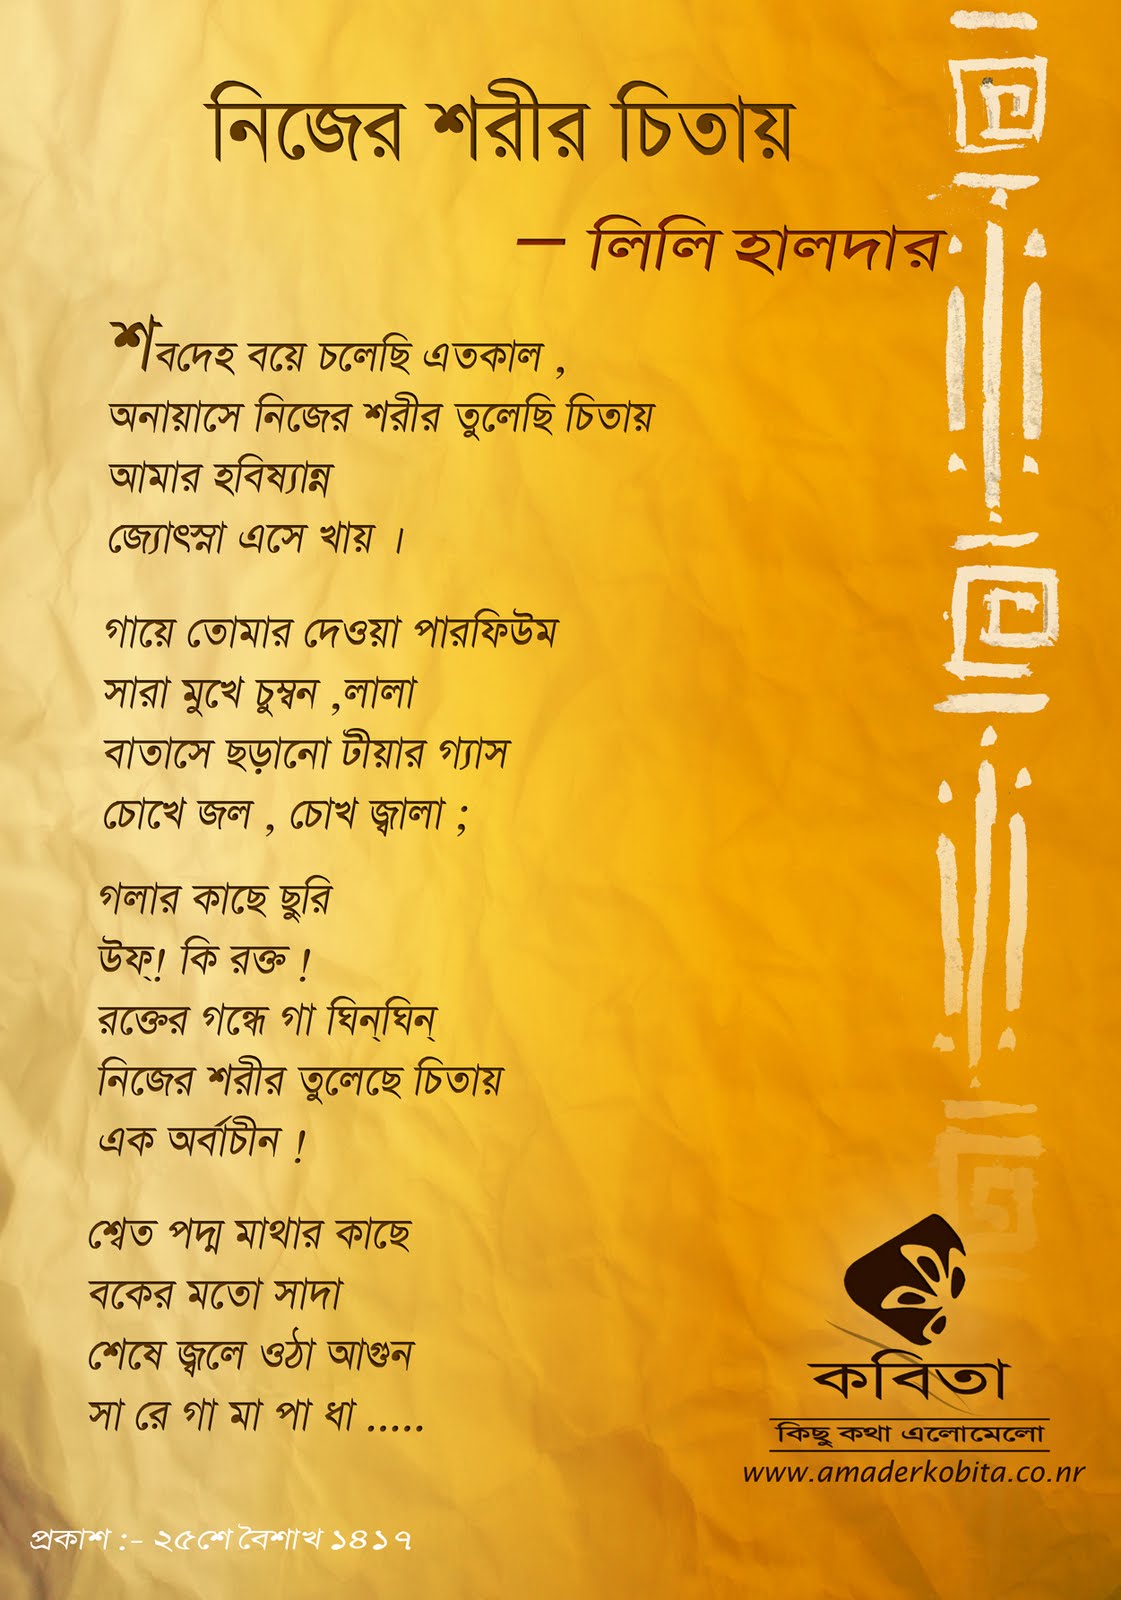 নিজের শরীর চিতায়
– লিলি হালদার
শবদেহ বয়ে চলেছি এতকাল ,
অনায়াসে নিজের শরীর তুলেছি চিতায়
আমার হবিষ্যান্ন
জ্যোৎস্না এসে খায় ।
গায়ে তোমার দেওয়া পারফিউম
সারা মুখে চুম্বন ,লালা
বাতাসে ছড়ানো টীয়ার গ্যাস
চোখে জল , চোখ জ্বালা ;
গলার কাছে ছুরি
উফ্! কি রক্ত !
রক্তের গন্ধে গা ঘিন্‌ঘিন্
নিজের শরীর তুলেছে চিতায়
এক অর্বাচীন !
শ্বেত পদ্ম মাথার কাছে
বকের মতো সাদা
শেষে জ্বলে ওঠা আগুন
সা রে গা মা পা ধা .....
কবিতা
কিছু কথা এলোমেলো
www.amaderkobita.co.nr
প্রকাশ :- ২৫শে বৈশাখ ১৪১৭